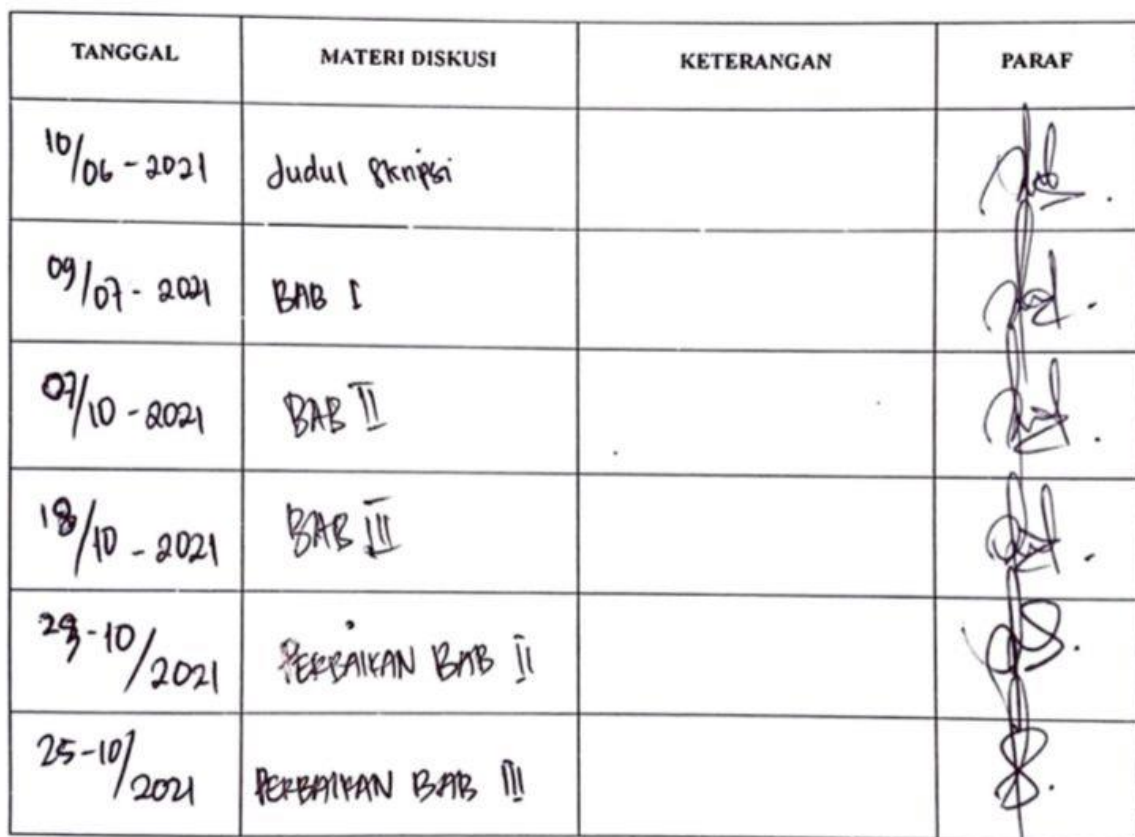 TANGGAL MATERI DISKUSI KETERANGAN PARAF
10/06 - 2021 Judul Skripsi
09/07 - 2021 BAB I
07/10 - 2021 BAB II
18/10 - 2021 BAB III
10/2021 PERBAIKAN BAB II
25-10/2021 PERBAIKAN BAB III